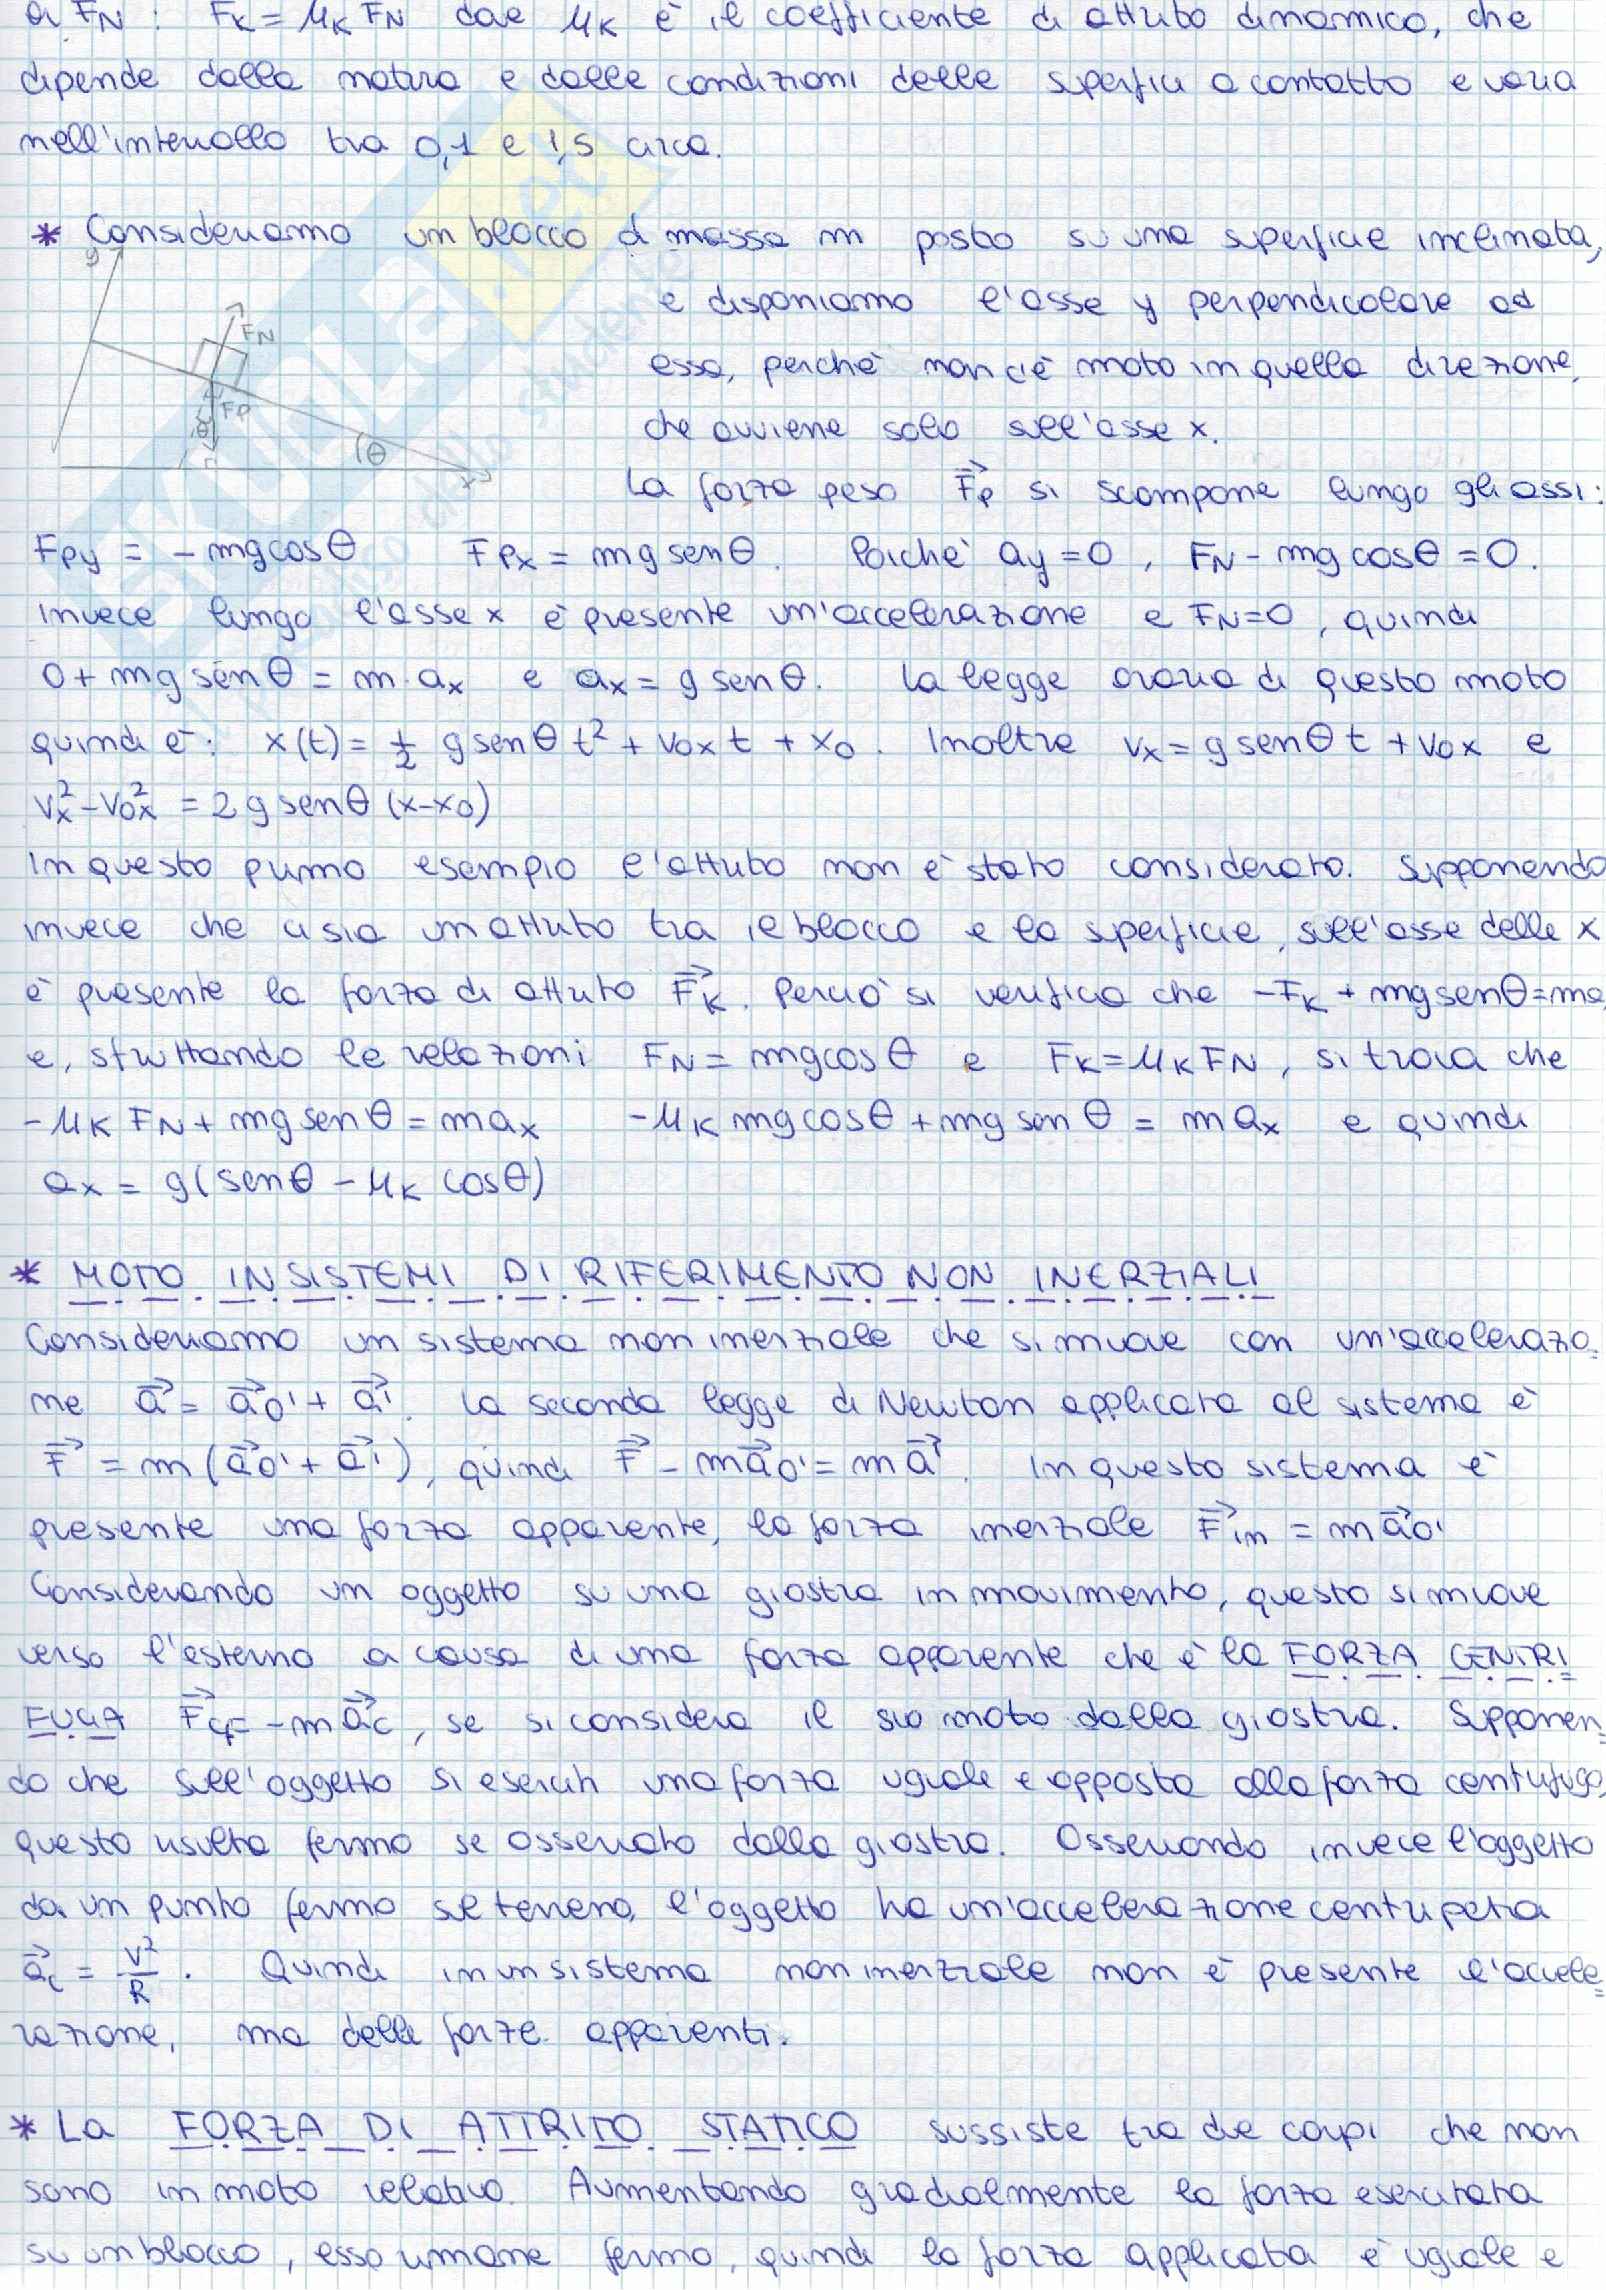 a FN : FK = μK FN dove μK è il coefficiente di attrito dinamico, che
dipende dalla natura e dalle condizioni delle superfici a contatto e varia
nell'intervallo tra 0,1 e 1,5 circa.
* Consideriamo un blocco di massa m posto su una superficie inclinata,
y
e disponiamo l'asse y perpendicolare ad
FN
essa, perché non c'è moto in quella direzione,
FP
θ
θ
che avviene solo sull'asse x.
x
La forza peso F⃗P si scompone lungo gli assi:
FPy = - mg cosθ FPx = mg senθ. Poiché ay = 0, FN - mg cosθ = 0.
Invece lungo l'asse x è presente un'accelerazione e FN=0, quindi
0 + mg senθ = m·ax e ax = g senθ. La legge oraria di questo moto
quindi è: x(t) = 1/2 g senθ t² + v0x t + x0. Inoltre vx = g senθ t + v0x e
vx² - v0x² = 2 g senθ (x-x0)
In questo primo esempio l'attrito non è stato considerato. Supponendo
invece che ci sia un attrito tra il blocco e la superficie, sull'asse delle x
è presente la forza di attrito F⃗K. Perciò si verifica che -FK + mg senθ = ma
e, sfruttando le relazioni FN = mg cosθ e FK = μK FN, si trova che
-μK FN + mg senθ = max -μK mg cosθ + mg senθ = max e quindi
ax = g(senθ - μK cosθ)
* MOTO IN SISTEMI DI RIFERIMENTO NON INERZIALI
Consideriamo un sistema non inerziale che si muove con un'accelerazio
ne a⃗ = a⃗o' + a⃗'. La seconda legge di Newton applicata al sistema è
F⃗ = m (a⃗o' + a⃗'), quindi F⃗ - ma⃗o' = ma⃗'. In questo sistema è
presente una forza apparente, la forza inerziale F⃗in = m a⃗o'
Considerando un oggetto su una giostra in movimento, questo si muove
verso l'esterno a causa di una forza apparente che è la FORZA CENTRI
FUGA F⃗CF = -m a⃗c, se si considera il suo moto dalla giostra. Supponen
do che sull'oggetto si eserciti una forza uguale e opposta alla forza centrifuga,
questo risulta fermo se osservato dalla giostra. Osservando invece l'oggetto
da un punto fermo sul terreno, l'oggetto ha un'accelerazione centripeta
a⃗c = v²/R. Quindi in un sistema non inerziale non è presente l'accele
razione, ma delle forze apparenti.
* La FORZA DI ATTRITO STATICO sussiste tra due corpi che non
sono in moto relativo. Aumentando gradualmente la forza esercitata
su un blocco, esso rimane fermo, quindi la forza applicata è uguale e